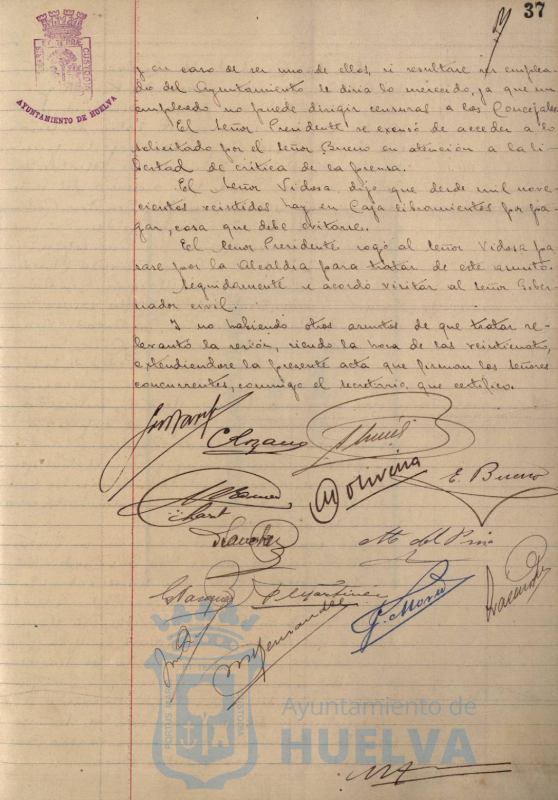 37
AYUNTAMIENTO DE HUELVA
y en caso de ser uno de ellos, si resultare ser emplea-
do del Ayuntamiento se diera lo merecido, ya que un
empleado no puede dirigir censuras a los Concejales.
El Señor Presidente se excusó de acceder a lo
solicitado por el Señor Bueno en atención a la li-
bertad de critica de la prensa.
El Señor Vidosa dijo que desde mil nove-
cientos veintidos hay en Caja libramientos por pa-
gar, cosa que debe evitarse.
El Señor Presidente rogó al Señor Vidosa pa-
sase por la Alcaldia para tratar de este asunto.
Seguidamente se acordó visitar al Señor Gober-
nador civil.
Y no habiendo otros asuntos de que tratar se
levantó la sesión, siendo la hora de las veinticuatro,
extendiendose la presente acta que firman los señores
concurrentes, conmigo el secretario que certifico.
C Lozano
M Oliveira
E. Bueno
M. del Pino
P. Martinez
M Fernandez
Ayuntamiento de
HUELVA